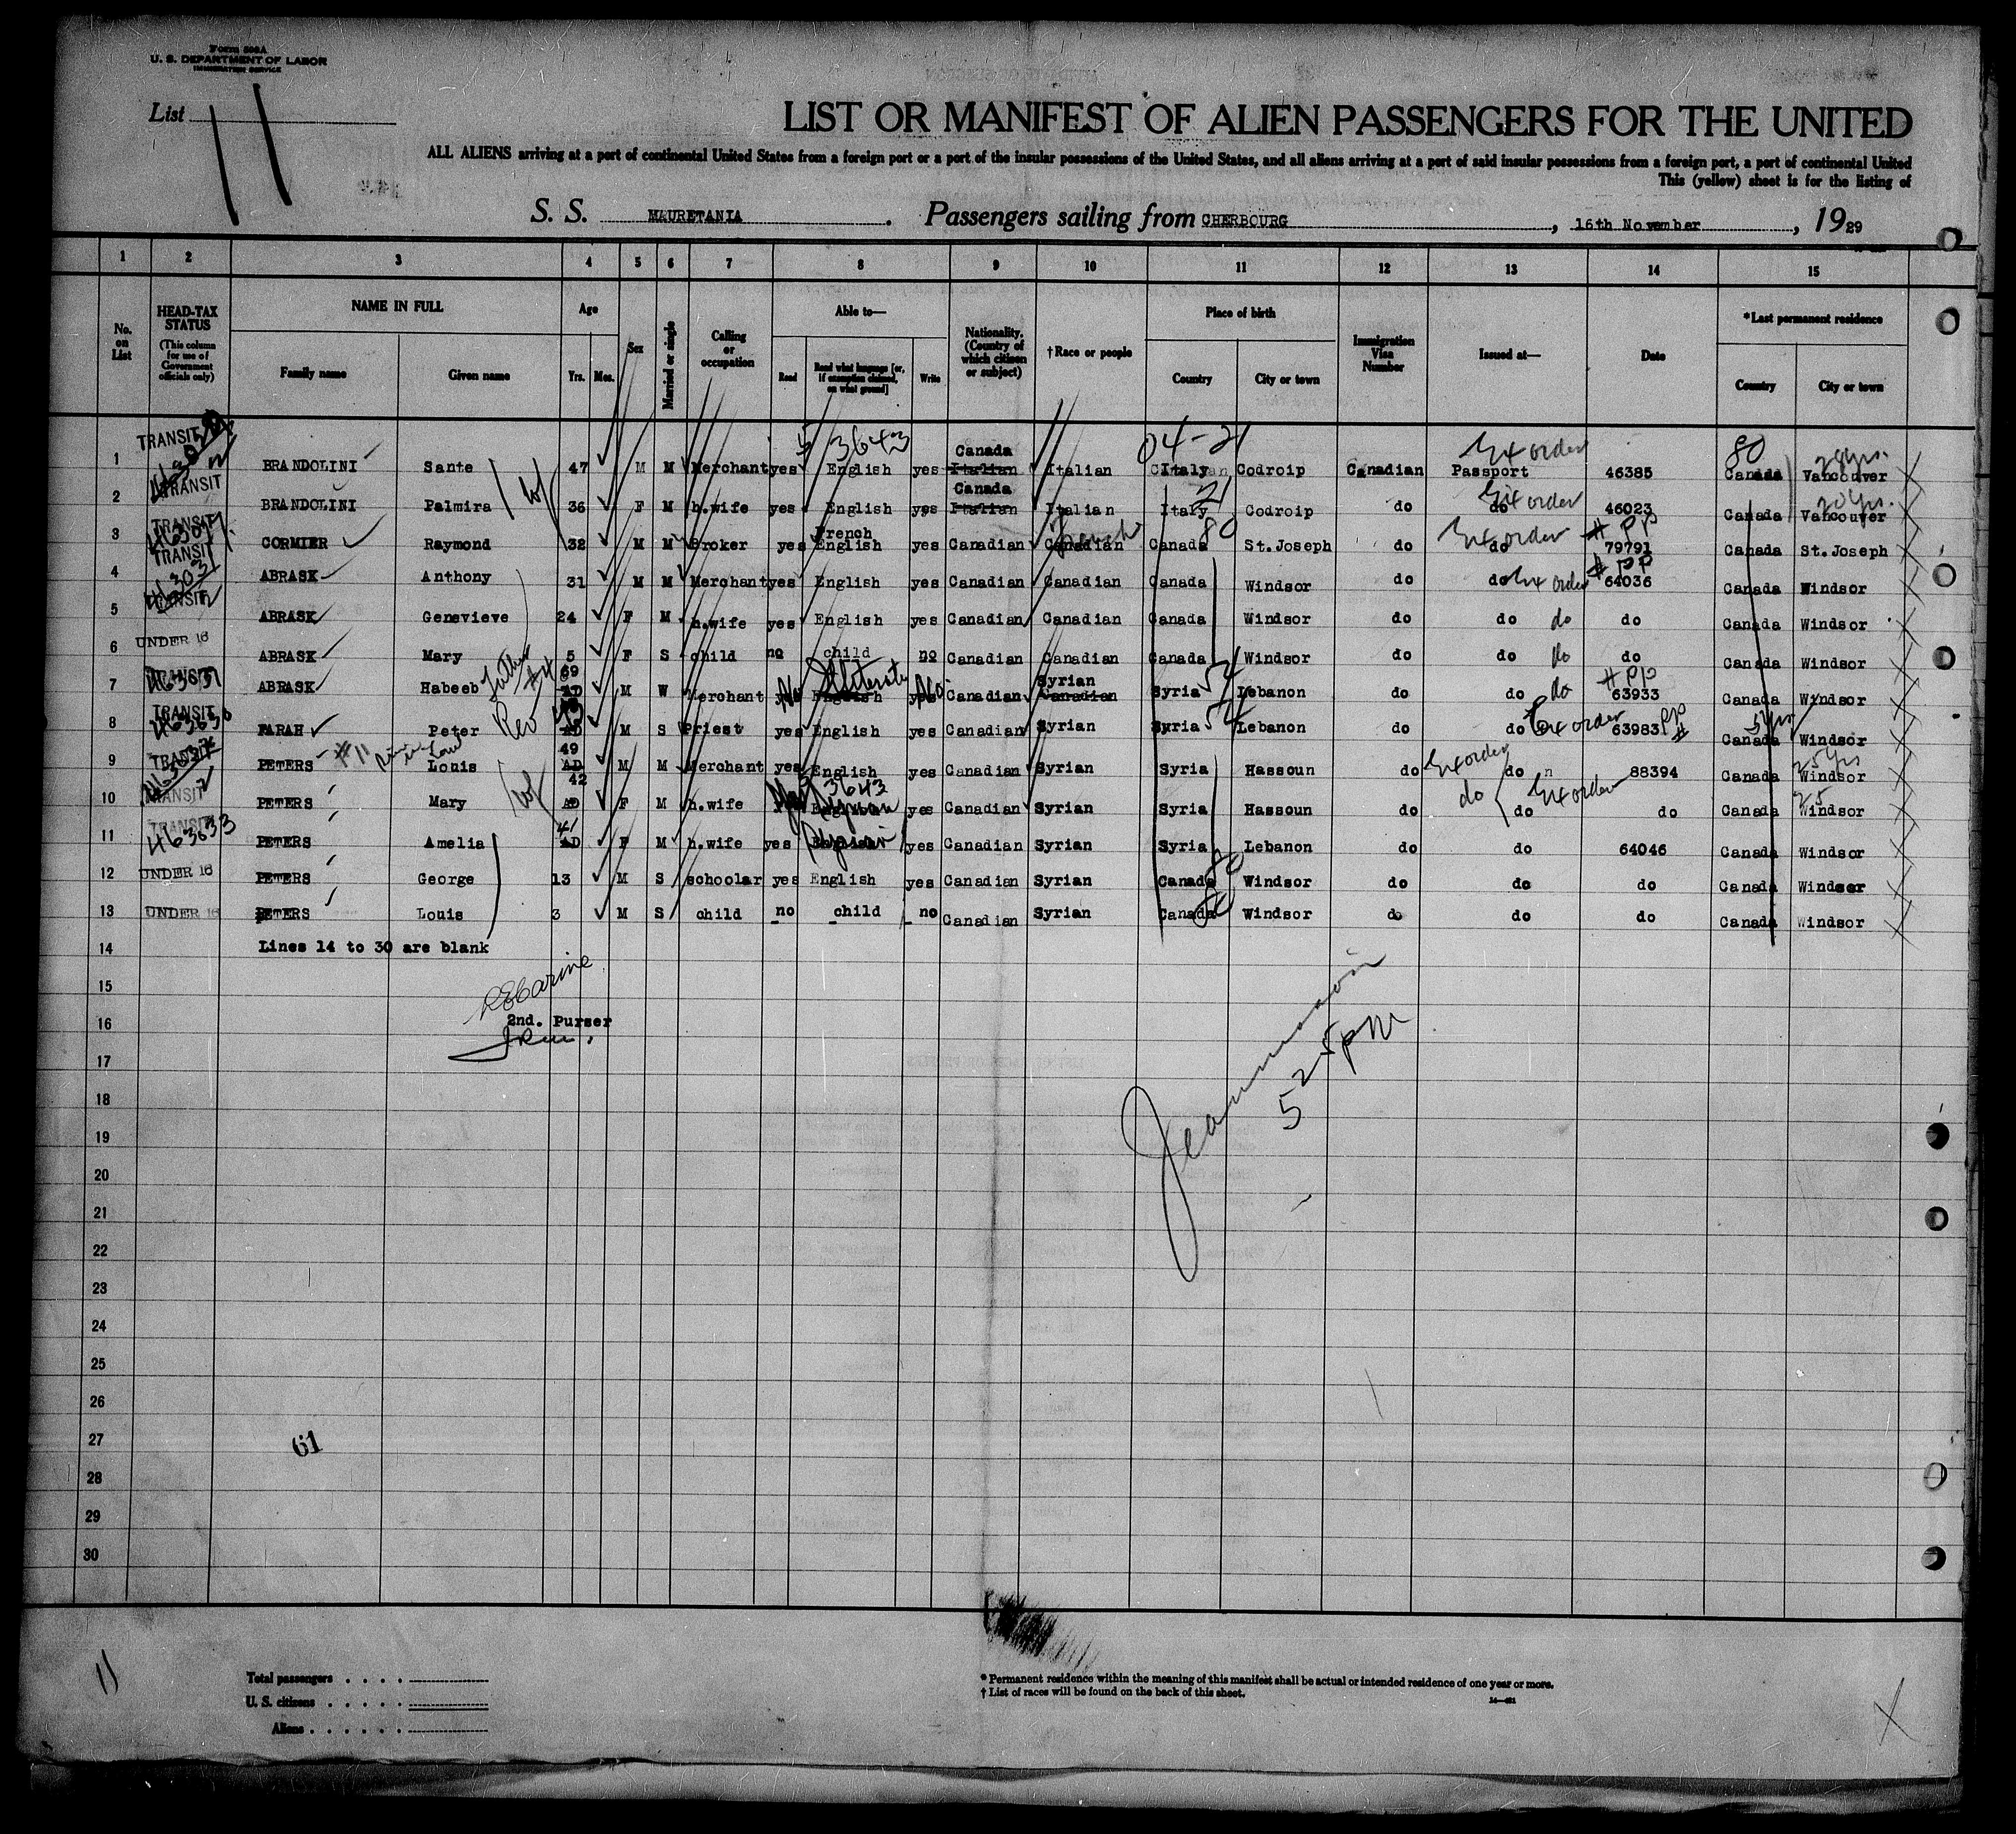 Form 500A
U. S. DEPARTMENT OF LABOR
IMMIGRATION SERVICE
List 11
LIST OR MANIFEST OF ALIEN PASSENGERS FOR THE UNITED
ALL ALIENS arriving at a port of continental United States from a foreign port or a port of the insular possessions of the United States, and all aliens arriving at a port of said insular possessions from a foreign port, a port of continental United
This (yellow) sheet is for the listing of
S. S. MAURETANIA. Passengers sailing from CHERBOURG, 16th November, 1929
1 2 3 4 5 6 7 8 9 10 11 12 13 14 15
No. on List HEAD-TAX STATUS (This column for use of Government officials only) NAME IN FULL Family name Given name Age Yrs. Mos. Sex Married or single Calling or occupation Able to— Read Read what language [or, if exemption claimed, on what ground] Write Nationality. (Country of which citizen or subject) †Race or people Place of birth Country City or town Immigration Visa Number Issued at— Date *Last permanent residence Country City or town
3643 04-21 Ex order 80 20 yrs.
1 TRANSIT BRANDOLINI Sante 47 M M Merchant yes English yes Canada Italian Italian Italy Codroip Canadian Passport 46385 Canada Vancouver
2 TRANSIT BRANDOLINI Palmira wf 36 F M h.wife yes English yes Canada Italian Italian Italy 21 Codroip do do Ex order 46023 Canada Vancouver 20 yrs.
3 TRANSIT CORMIER Raymond 32 M M Broker yes French English yes Canadian Canadian French Canada 80 St.Joseph do do Ex order # PP 79791 Canada St.Joseph
4 TRANSIT ABRASK Anthony 31 M M Merchant yes English yes Canadian Canadian Canada Windsor do do Ex order # PP 64036 Canada Windsor
5 TRANSIT ABRASK Genevieve 24 F M h.wife yes English yes Canadian Canadian Canada Windsor do do do do Canada Windsor
6 UNDER 16 ABRASK Mary 5 F S child no child no Canadian Canadian Canada Windsor do do do do Canada Windsor
7 TRANSIT 463631 ABRASK Habeeb Father #4 69 AD M W Merchant yes No English Illiterate yes No Canadian Syrian Canadian Syria 54 Lebanon do do do # PP 63933 Canada Windsor
8 TRANSIT 463636 FARAH Rev Peter AD M S Priest yes English yes Canadian Syrian Syria 54 Lebanon do do Ex order 63983 PP # Canada 5 yrs Windsor
9 TRANSIT PETERS Louis 49 AD M M Merchant yes English yes Canadian Syrian Syria Hassoun do Ex order do 88394 Canada Windsor 25 yrs
10 TRANSIT PETERS Mary wf 42 AD F M h.wife 3643 English yes Canadian Syrian Syria Hassoun do do do Ex order do Canada Windsor 25
11 TRANSIT 463633 PETERS Amelia 41 AD F M h.wife yes English Syrian yes Canadian Syrian Syria Lebanon do do 64046 Canada Windsor
12 UNDER 16 PETERS George 13 M S schoolar yes English yes Canadian Syrian Canada 80 Windsor do do do Canada Windsor
13 UNDER 16 PETERS Louis 3 M S child no child no Canadian Syrian Canada 80 Windsor do do do Canada Windsor
14 Lines 14 to 30 are blank
15
16 2nd. Purser
17
18 525 PM
19
20
21
22
23
24
25
26
27 61
28
29
30
11
Total passengers
U. S. citizens
Aliens
* Permanent residence within the meaning of this manifest shall be actual or intended residence of one year or more.
† List of races will be found on the back of this sheet.